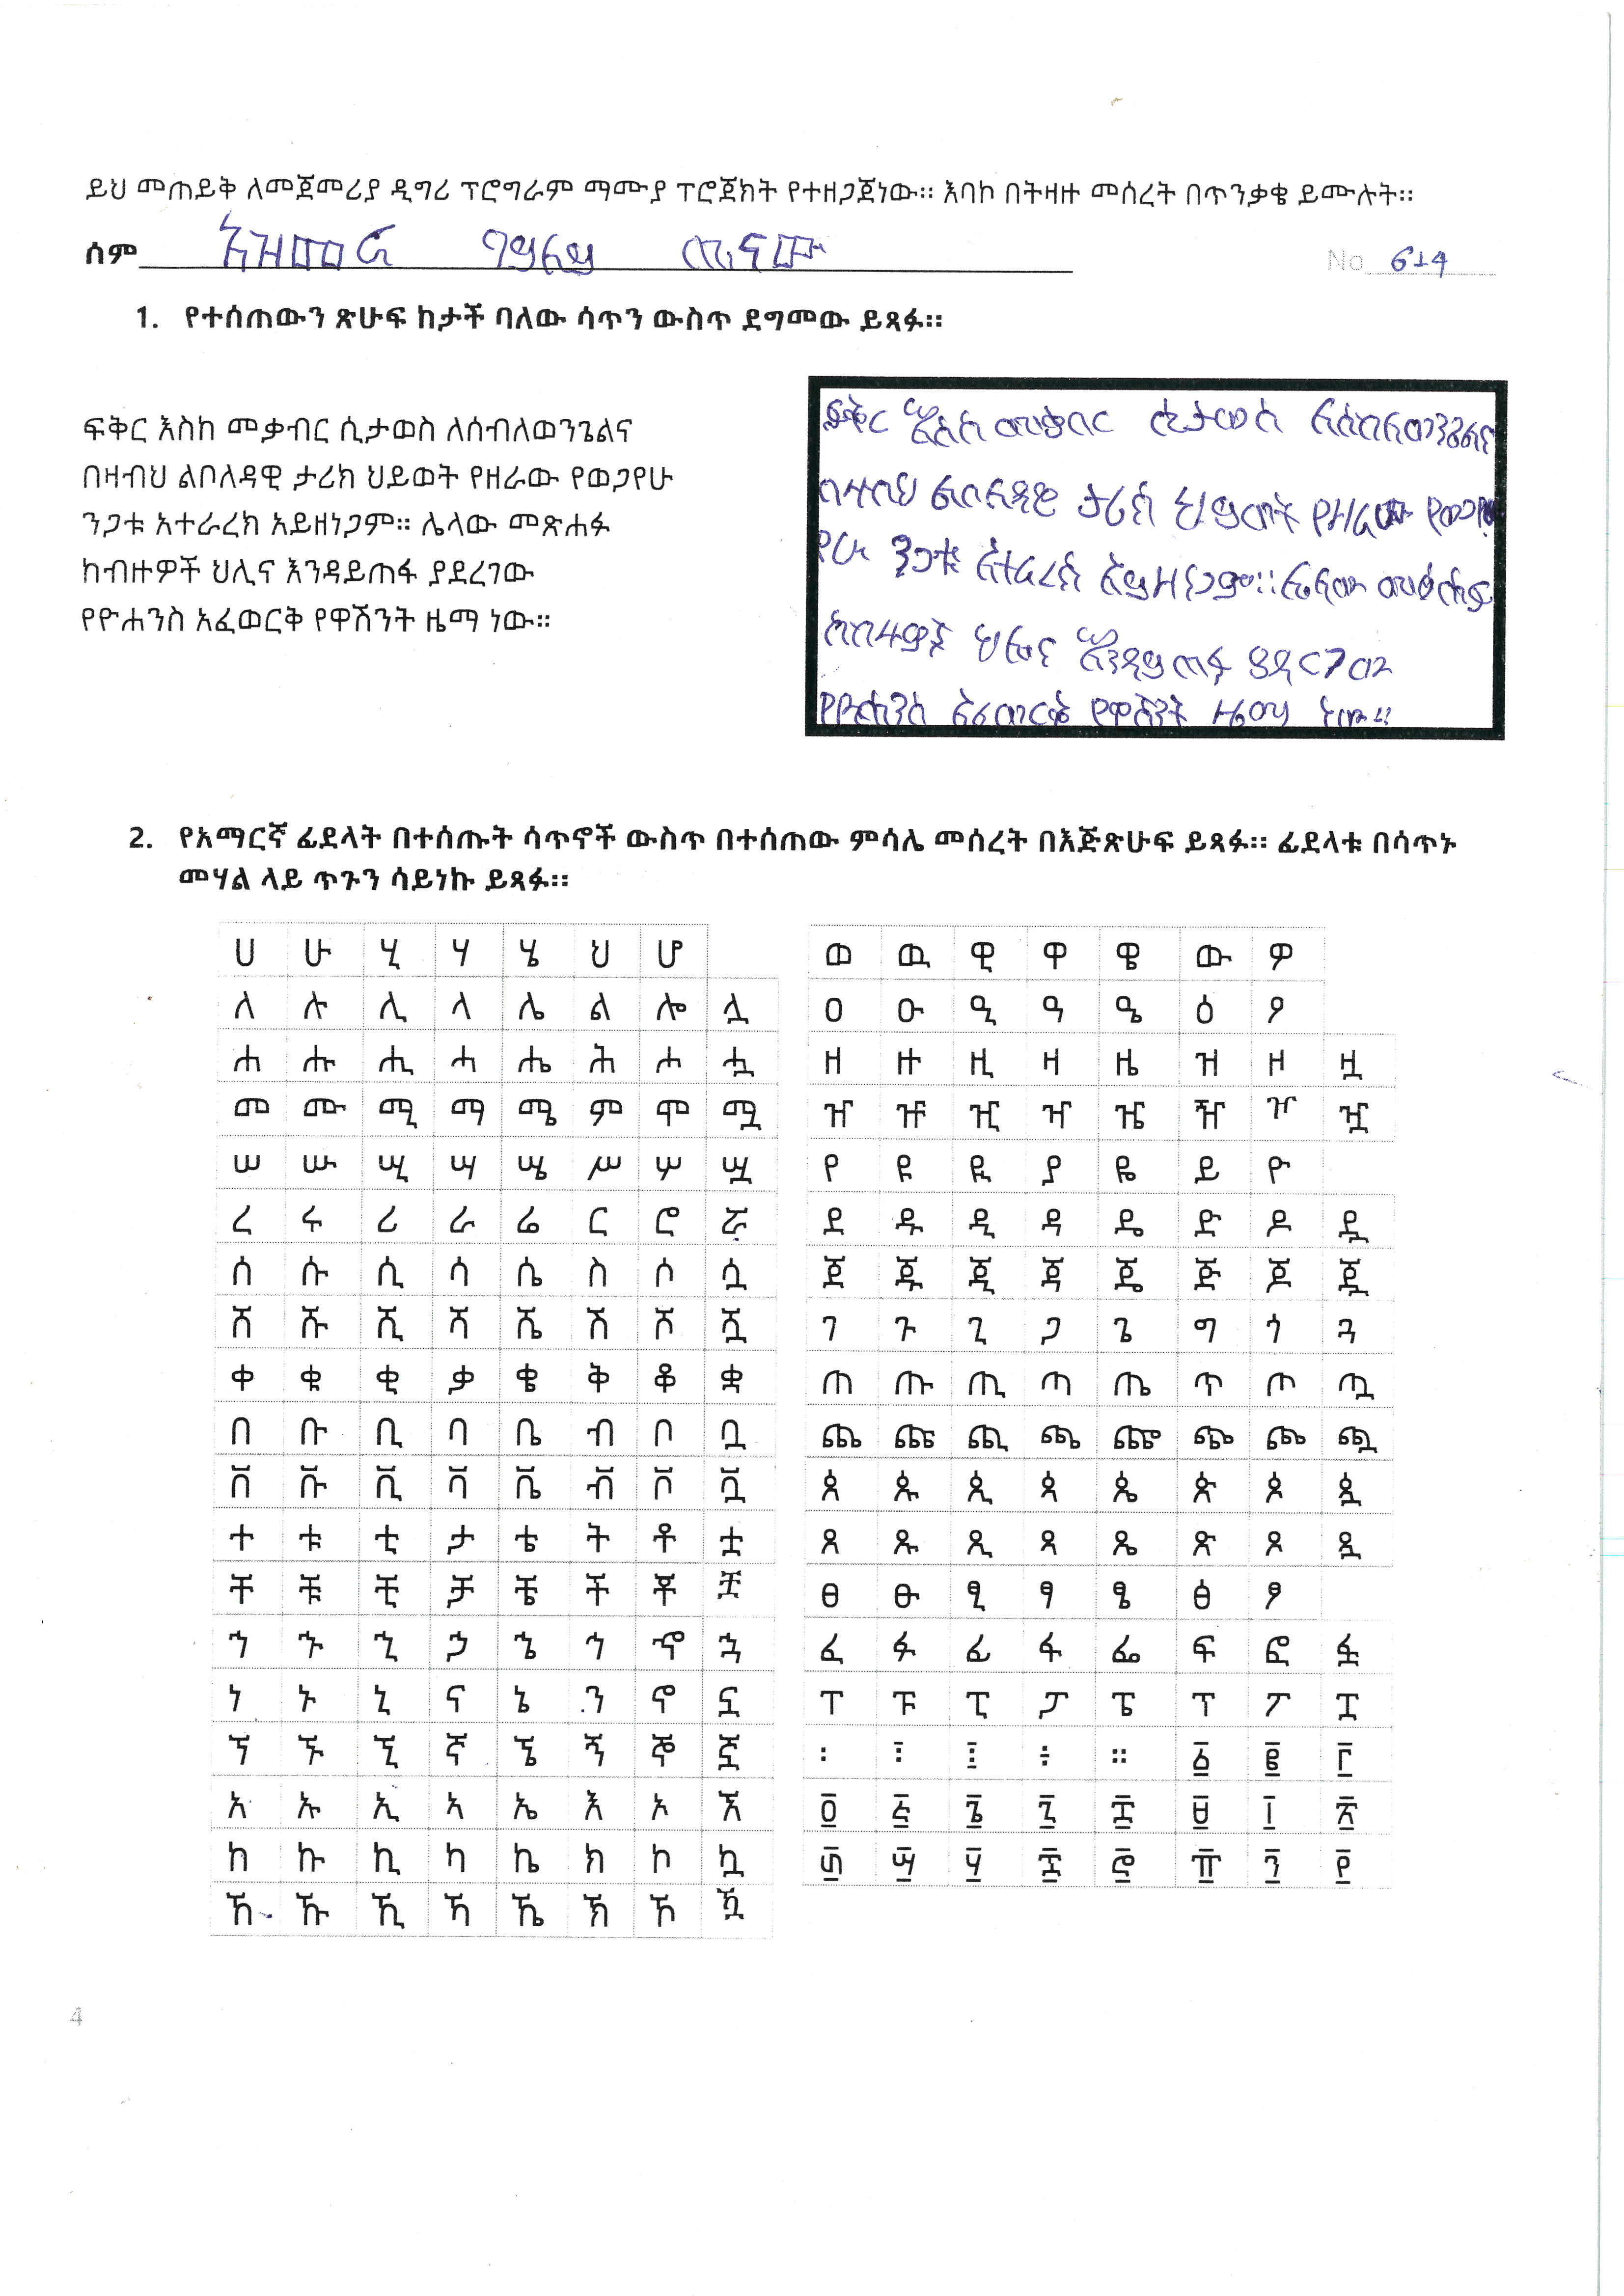 ይህ መጠይቅ ለመጀመሪያ ዲግሪ ፕሮግራም ማሙያ ፕሮጀክት የተዘጋጀነው። እባኮ በትዛዙ መሰረት በጥንቃቄ ይሙሉት።
ሰም
No 614
1. የተሰጠውን ጽሁፍ ከታች ባለው ሳጥን ውስጥ ደግመው ይጻፉ።
ፍቅር እስከ መቃብር ሲታወስ ለሰብለወንጌልና
በዛብህ ልቦለዳዊ ታሪክ ህይወት የዘራው የወጋየሁ
ንጋቱ አተራረክ አይዘነጋም። ሌላው መጽሐፉ
ከብዙዎች ህሊና እንዳይጠፋ ያደረገው
የዮሐንስ አፈወርቅ የዋሽንት ዜማ ነው።
ፍቅር እስከ መቃብር ሲታወስ ለሰብለወንጌልና
በዛብህ ልቦለዳዊ ታሪክ ህይወት የዘራው
የሁ ንጋቱ አተራረክ አይዘነጋም። ሌላው መፅሐፉ
ከብዙዎች ህሊና እንዳይጠፋ ያዳርገው
የዮሐንስ አፈወርቅ የዋሽንት ዜማ ነው።
2. የአማርኛ ፊደላት በተሰጡት ሳጥኖች ውስጥ በተሰጠው ምሳሌ መሰረት በእጅጽሁፍ ይጻፉ። ፊደላቱ በሳጥኑ
መሃል ላይ ጥጉን ሳይነኩ ይጻፉ።
ሀ ሁ ሂ ሃ ሄ ህ ሆ
ለ ሉ ሊ ላ ሌ ል ሎ ሏ
ሐ ሑ ሒ ሓ ሔ ሕ ሖ ሗ
መ ሙ ሚ ማ ሜ ም ሞ ሟ
ሠ ሡ ሢ ሣ ሤ ሥ ሦ ሧ
ረ ሩ ሪ ራ ሬ ር ሮ ሯ
ሰ ሱ ሲ ሳ ሴ ስ ሶ ሷ
ሸ ሹ ሺ ሻ ሼ ሽ ሾ ሿ
ቀ ቁ ቂ ቃ ቄ ቅ ቆ ቋ
በ ቡ ቢ ባ ቤ ብ ቦ ቧ
ቨ ቩ ቪ ቫ ቬ ቭ ቮ ቯ
ተ ቱ ቲ ታ ቴ ት ቶ ቷ
ቸ ቹ ቺ ቻ ቼ ች ቾ ቿ
ኀ ኁ ኂ ኃ ኄ ኅ ኆ ኋ
ነ ኑ ኒ ና ኔ ን ኖ ኗ
ኘ ኙ ኚ ኛ ኜ ኝ ኞ ኟ
አ ኡ ኢ ኣ ኤ እ ኦ ኧ
ከ ኩ ኪ ካ ኬ ክ ኮ ኳ
ኸ ኹ ኺ ኻ ኼ ኽ ኾ ዃ
ወ ዉ ዊ ዋ ዌ ው ዎ
ዐ ዑ ዒ ዓ ዔ ዕ ዖ
ዘ ዙ ዚ ዛ ዜ ዝ ዞ ዟ
ዠ ዡ ዢ ዣ ዤ ዥ ዦ ዧ
የ ዩ ዪ ያ ዬ ይ ዮ
ደ ዱ ዲ ዳ ዴ ድ ዶ ዷ
ጀ ጁ ጂ ጃ ጄ ጅ ጆ ጇ
ገ ጉ ጊ ጋ ጌ ግ ጎ ጓ
ጠ ጡ ጢ ጣ ጤ ጥ ጦ ጧ
ጨ ጩ ጪ ጫ ጬ ጭ ጮ ጯ
ጰ ጱ ጲ ጳ ጴ ጵ ጶ ጷ
ጸ ጹ ጺ ጻ ጼ ጽ ጾ ጿ
ፀ ፁ ፂ ፃ ፄ ፅ ፆ
ፈ ፉ ፊ ፋ ፌ ፍ ፎ ፏ
ፐ ፑ ፒ ፓ ፔ ፕ ፖ ፗ
፡ ፧ ፤ ፥ ። ፩ ፪ ፫
፬ ፭ ፮ ፯ ፰ ፱ ፲ ፳
፴ ፵ ፶ ፷ ፸ ፹ ፺ ፻
4